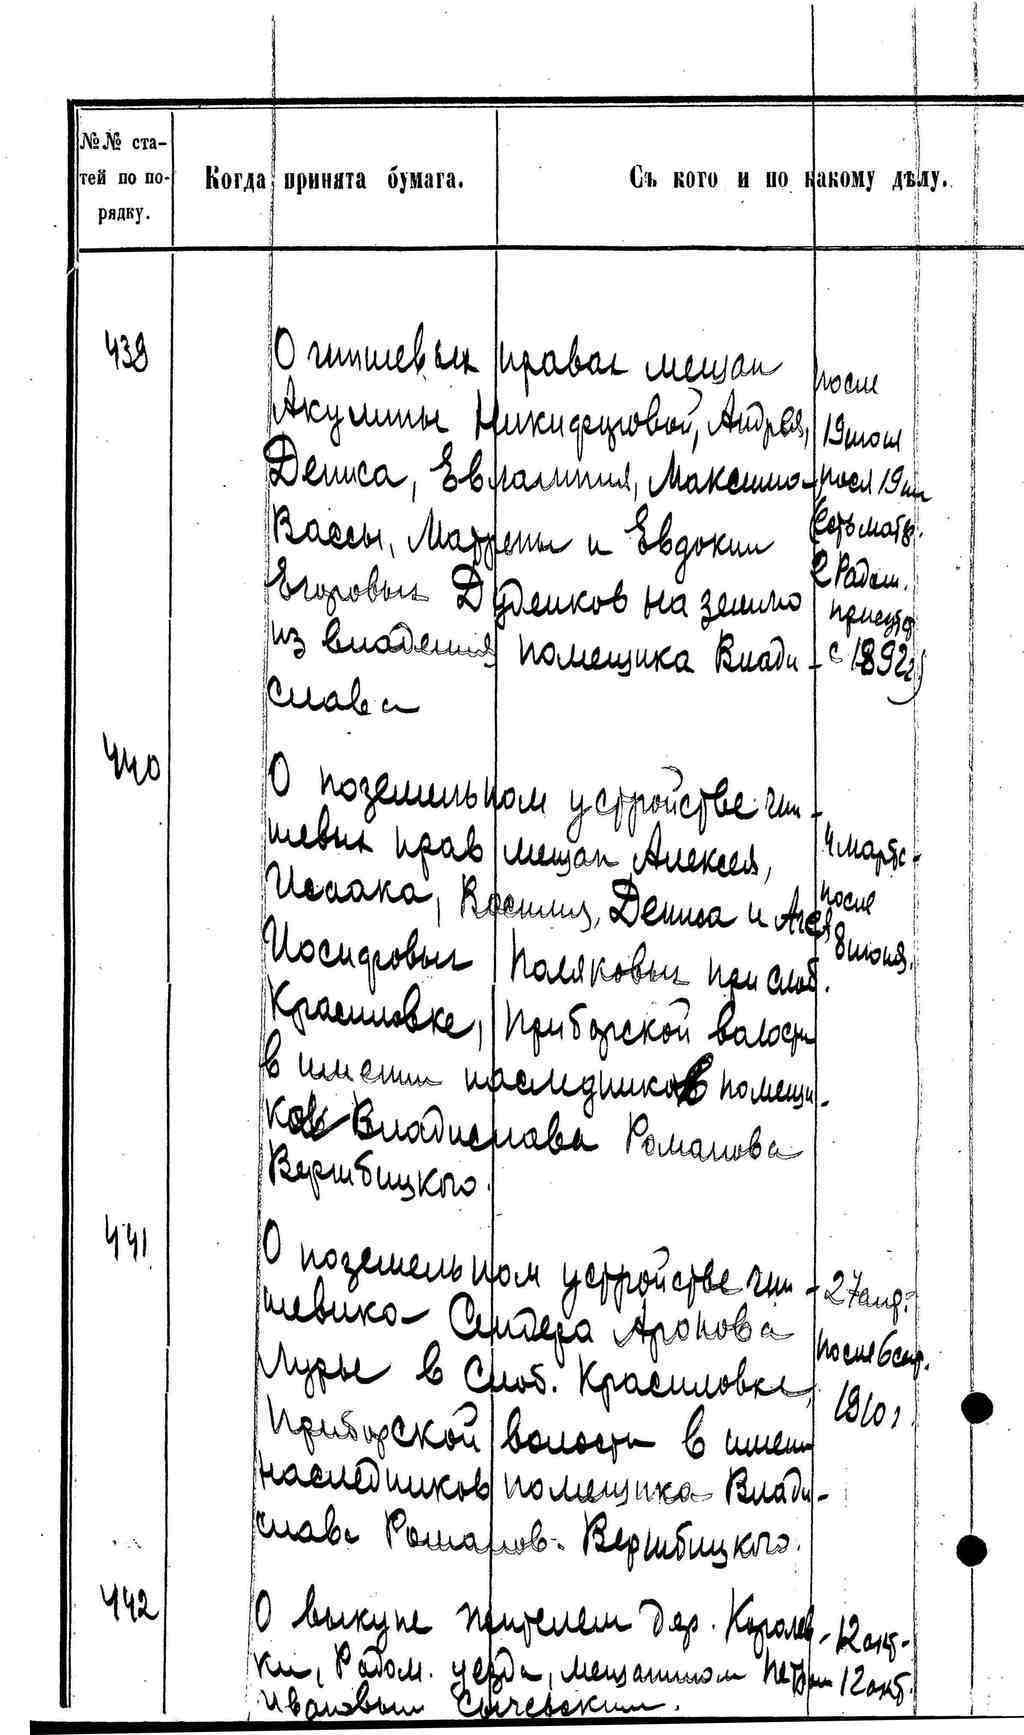 №№ ста-
тей по по-
рядку.
Когда принята бумага.
Съ кого и по какому дѣлу.
439
О чиншевых правах мещан
Акулины Никифоровой, Андрея,
Дениса, Евлампия, Максима
Вассы, Матрены и Евдокии
Егоровых Дуденков на землю
из владения помещика Влади-
слава
после
19 июля
посл 19 июл
(есть матер.
с Радом.
присутст
с 1892 г)
440
О поземельном устройстве чин-
шевых прав мещан Алексея,
Исаака, Василия, Дениса и
Иосифовых Поляковых при слоб.
Красиловке, Приборской волости
в имении наследников помещи-
ков Владислава Романова
Вержбицкого.
4 марта -
после
8 июня.
441
О поземельном устройстве чин-
шевика Сендера Аронова
Лурье в слоб. Красиловке,
Приборской волости в имени
наследников помещика Влади-
слава Романов. Вержбицкого.
27 апр.-
после 6 сент.
1910 г.
442
О выкупе жителем дер. Королев-
ки, Радом. уезда, мещанином Петром
Ивановым Сычевским.
12 окт-
12 окт.